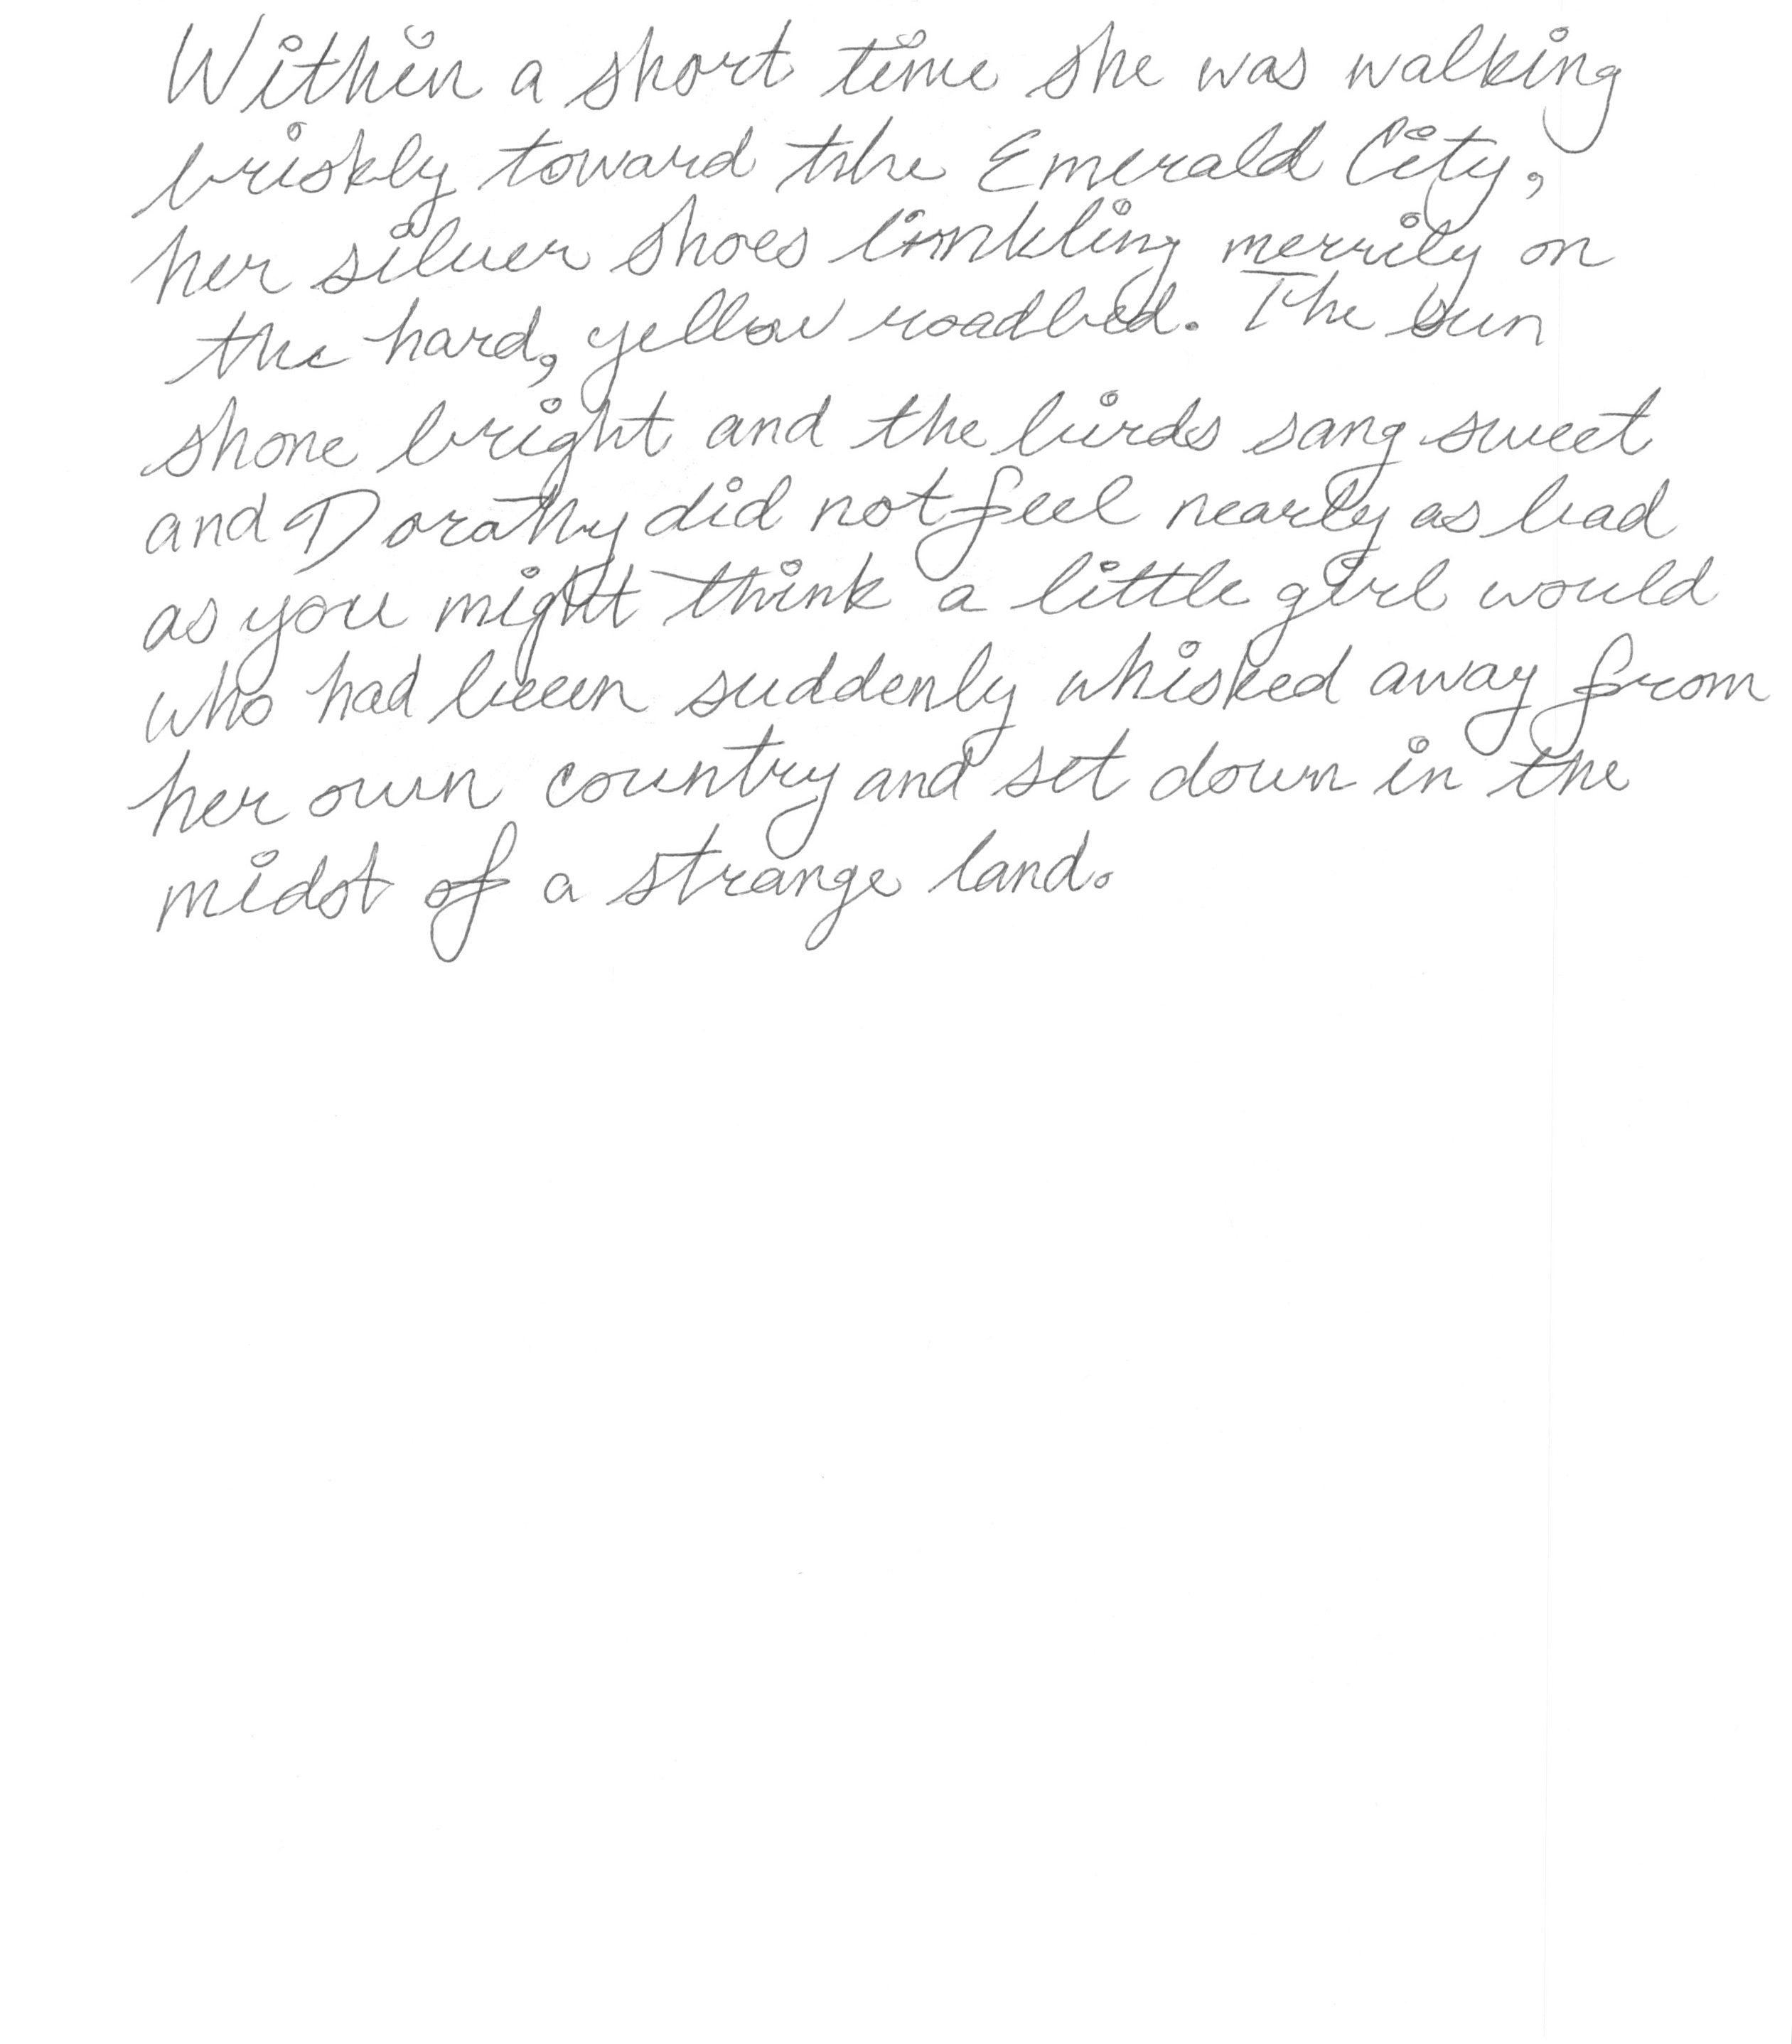 Within a short time she was walking
briskly toward the Emerald City,
her silver shoes tinkling merrily on
the hard, yellow roadbed. The sun
shone bright and the birds sang sweet
and Dorothy did not feel nearly as bad
as you might think a little girl would
who had been suddenly whisked away from
her own country and set down in the
midst of a strange land.